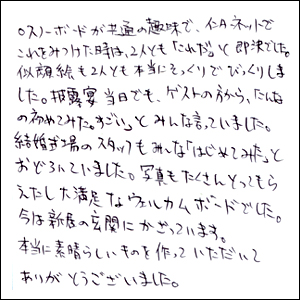 ○スノーボードが共通の趣味で、インターネットで
これをみつけた時は、2人とも「これだ。」と即決でした。
似顔絵も2人とも本当にそっくりでびっくりしま
した。披露宴当日でも、ゲストの方から、「こんなの
初めてみた。すごい」とみんな言っていました。
結婚式場のスタッフもみんな「はじめてみた」と
おどろいていました。写真もたくさんとってもら
えたし大満足なウェルカムボードでした。
今は新居の玄関にかざっています。
本当に素晴らしいものを作っていただいて
ありがとうございました。